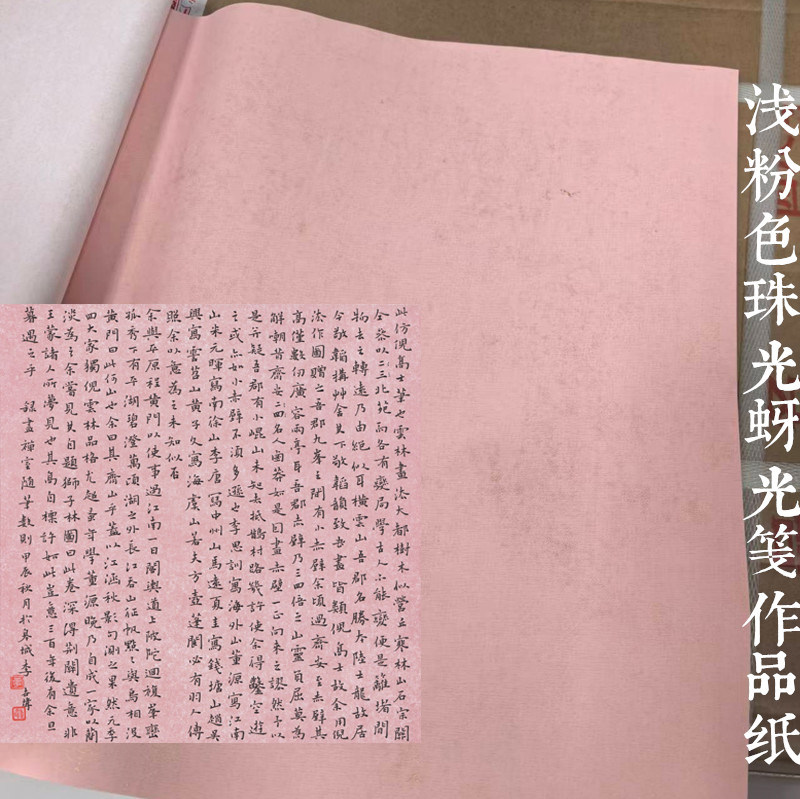 浅粉色珠光蚜光笺作品纸
此仿倪高士筆也雲林畫法大都樹木似營丘寒林山石宗關
仝皴以二三北苑而各有變局學古人不能變便是籬堵間
物去之轉遠乃由絕似耳橫雲山吾郡名勝本陸士龍故居
今敬韜構艸舍其下敬韜韻致吾畫皆類倪高士故余用倪
法作圖贈之吾郡九峯之間有小赤壁余頃過齊安至赤壁其
高僅數仞廣容兩亭耳吾郡赤壁乃三四倍之山靈負屈莫為
解嘲昔齊安二四名人圖莽如是因畫赤壁一正向來之謬然予以
是并疑吾郡有小崑山未知去抵鵲村路幾許使余得鑿空遊
之或亦如小赤壁不須多遜也李思訓寫海外山董源寫江南
山米元暉寫南徐山李唐寫中州山馬遠夏圭寫錢塘山趙吳
興寫霅苕山黃子久寫海虞山若夫方壺蓬閬必有羽人傳
照余以意為之未知似否
余與平原程黃門以使事過江南一日閣輿道上陂陀迴複峯巒
孤秀下有平湖碧澄萬頃湖之外長江吞山征帆點〻與鳥相沒
黃門曰此何山也余曰其齊山乎蓋以江涵秋影句測之果然元季
四大家獨倪雲林品格尤超蚤年學董源晚乃自成一家以簡
淡為之余嘗見其自題獅子林圖曰此卷深得荊關遺意非
王蒙諸人所夢見也其高自標許如此豈意三百年後有余旦
暮遇之乎 録畫禪室隨筆數則甲辰秋月於泉城李